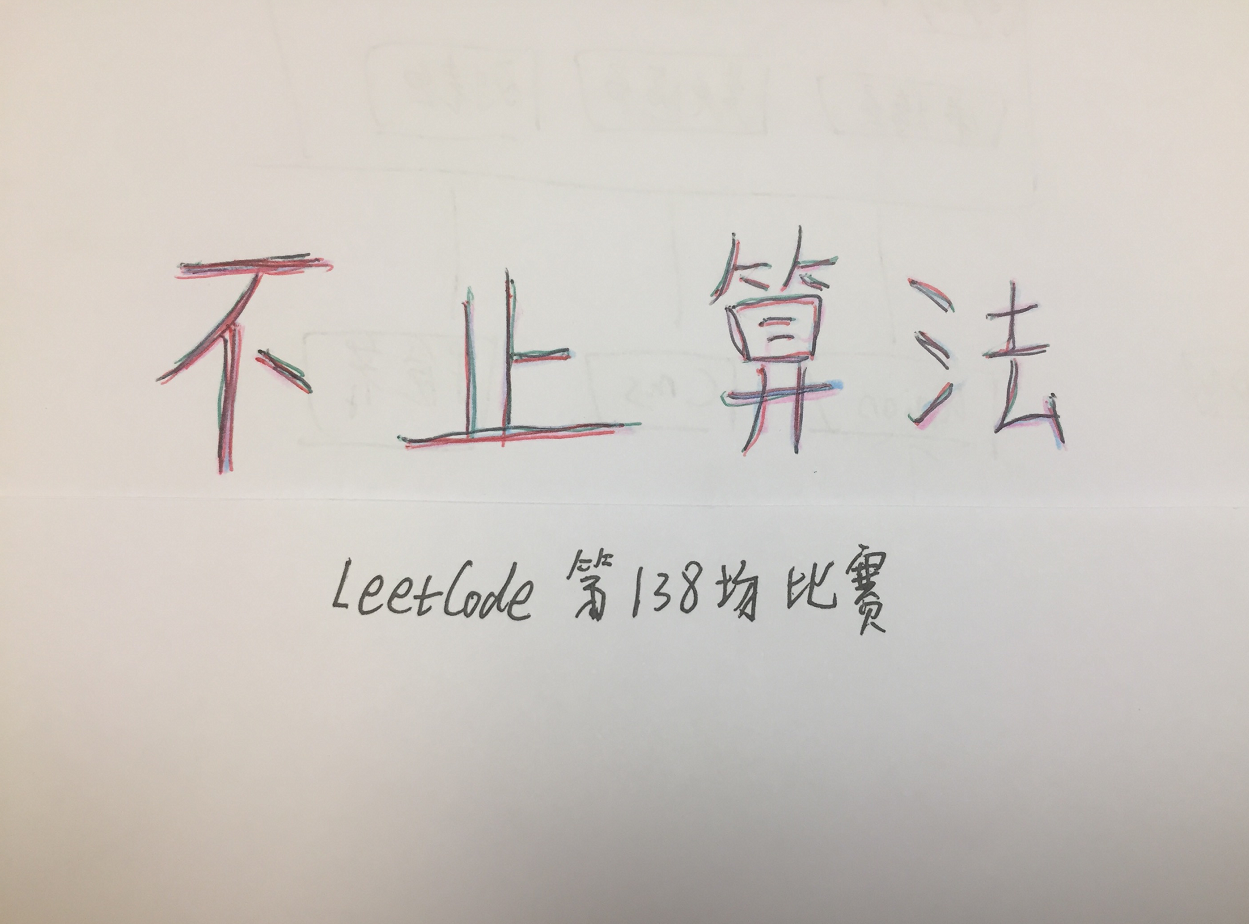 不止算法
LeetCode 第138场比赛